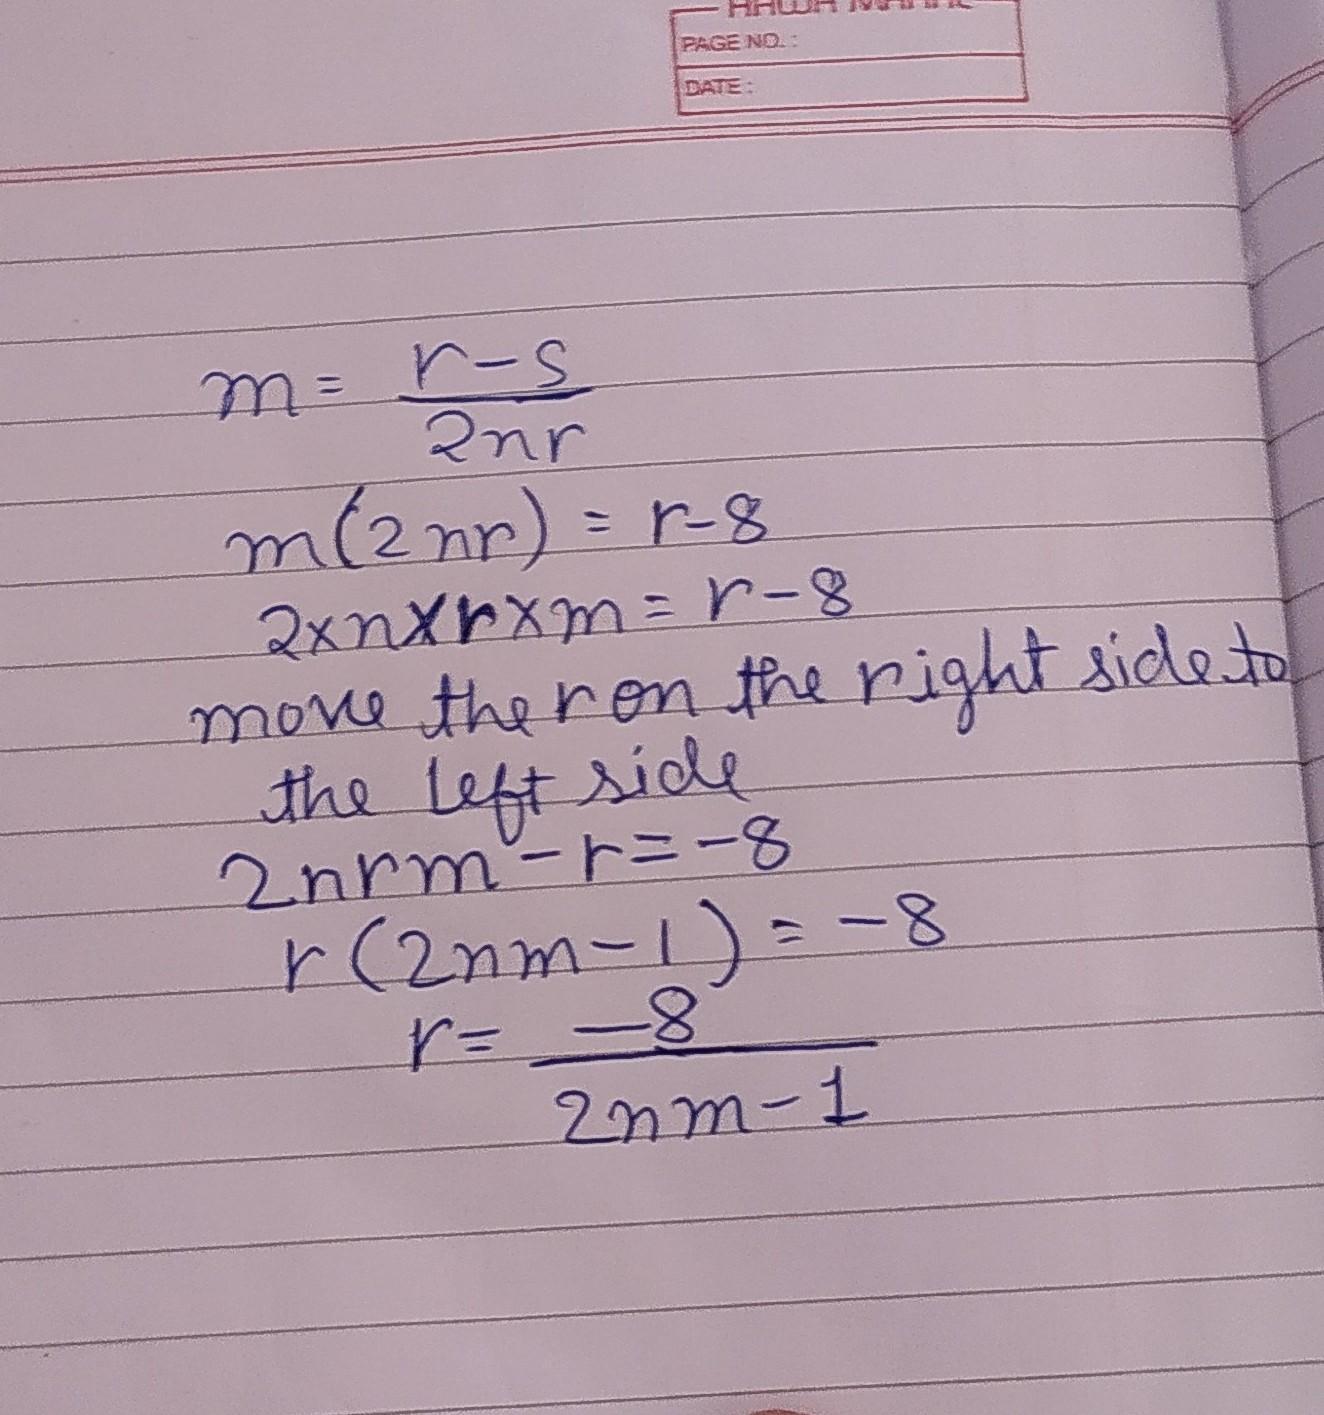 PAGE NO. :
DATE :
m = r-s / 2nr
m(2nr) = r-8
2×n×r×m = r-8
move the r on the right side to
the left side
2nrm - r = -8
r(2nm-1) = -8
r = -8 / 2nm-1